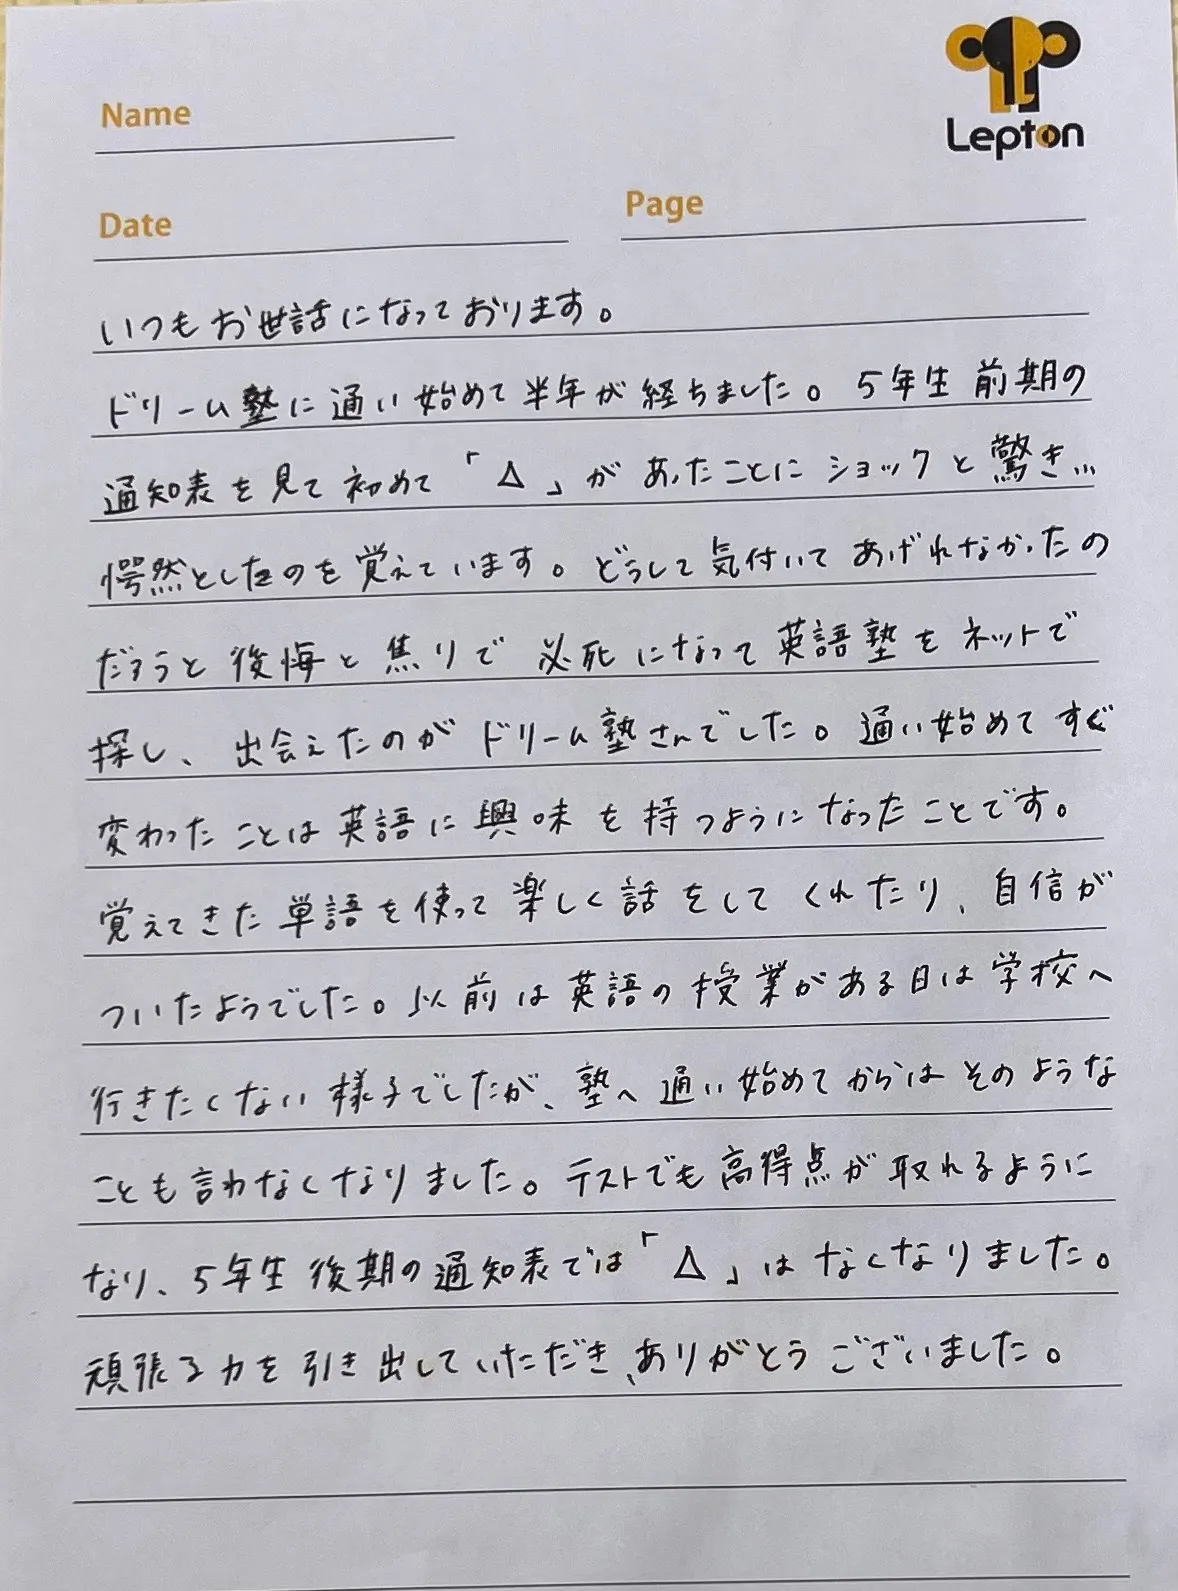 Lepton
Name
Date
Page
いつもお世話になっております。
ドリーム塾に通い始めて半年が経ちました。5年生前期の
通知表を見て初めて「△」があったことにショックと驚き…
愕然としたのを覚えています。どうして気付いてあげれなかったの
だろうと後悔と焦りで必死になって英語塾をネットで
探し、出会えたのがドリーム塾さんでした。通い始めてすぐ
変わったことは英語に興味を持つようになったことです。
覚えてきた単語を使って楽しく話をしてくれたり、自信が
ついたようでした。以前は英語の授業がある日は学校へ
行きたくない様子でしたが、塾へ通い始めてからはそのような
ことも言わなくなりました。テストでも高得点が取れるように
なり、5年生後期の通知表では「△」はなくなりました。
頑張る力を引き出していただき、ありがとうございました。